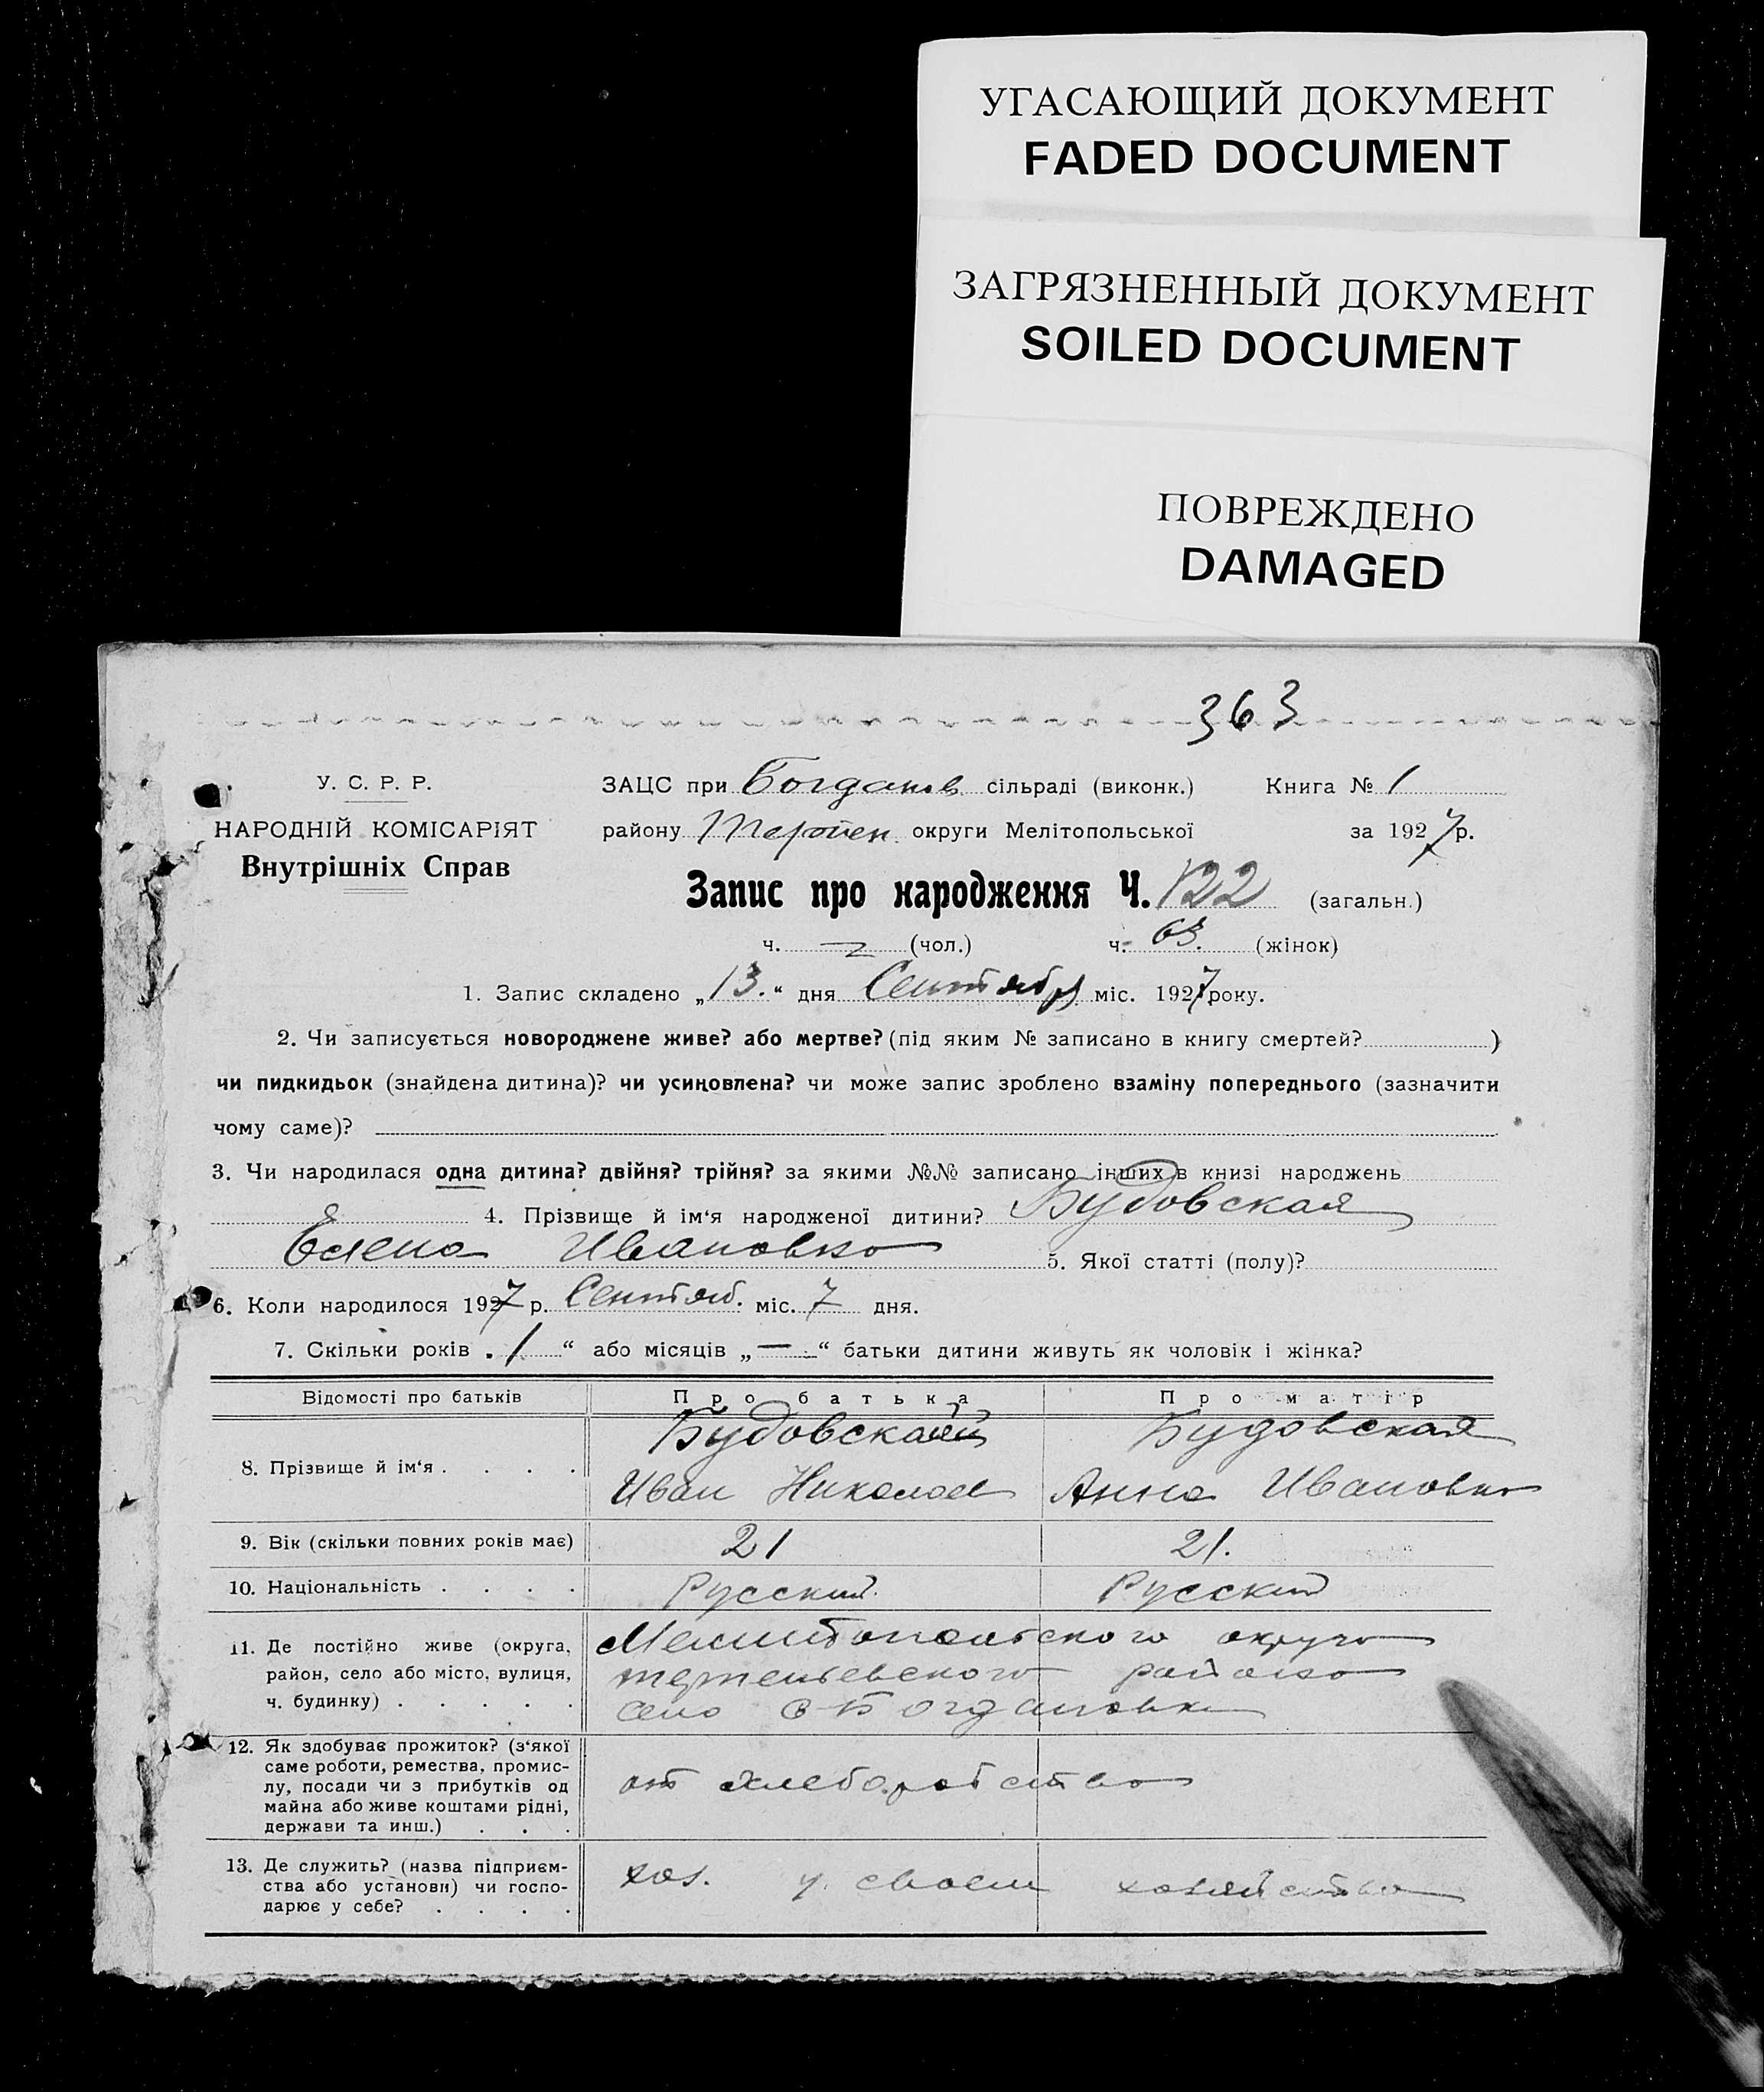 УГАСАЮЩИЙ ДОКУМЕНТ
FADED DOCUMENT
ЗАГРЯЗНЕННЫЙ ДОКУМЕНТ
SOILED DOCUMENT
ПОВРЕЖДЕНО
DAMAGED
363
У. С. Р. Р.
НАРОДНІЙ КОМІСАРІЯТ
Внутрішніх Справ
ЗАЦС при Богданов сільраді (виконк.) Книга № 1
району округи Мелітопольської за 1927 р.
Запис про народження Ч. 122 (загальн.)
ч. — (чол.) ч. 63. (жінок)
1. Запис складено „13.“ дня Сентябр міс. 1927 року.
2. Чи записується новороджене живе? або мертве? (під яким № записано в книгу смертей? )
чи пидкидьок (знайдена дитина)? чи усиновлена? чи може запис зроблено взаміну попереднього (зазначити
чому саме)?
3. Чи народилася одна дитина? двійня? трійня? за якими №№ записано інших в книзі народжень
4. Прізвище й ім‘я народженої дитини? Будовская
Елена Ивановна 5. Якої статті (полу)?
6. Коли народилося 1927 р. Сентяб. міс. 7 дня.
7. Скільки років „1“ або місяців „—“ батьки дитини живуть як чоловік і жінка?
Відомості про батьків Про батька Про матір
8. Прізвище й ім‘я . . . .
Будовский Будовская
Иван Николаев Анна Ивановна
9. Вік (скільки повних років має) 21 21.
10. Національність . . . . Русский Русский
11. Де постійно живе (округа,
район, село або місто, вулиця,
ч. будинку) . . . . .
Мелитопольского округа
терпеньевского района
село Богдановка
12. Як здобуває прожиток? (з‘якої
саме роботи, ремества, промис-
лу, посади чи з прибутків од
майна або живе коштами рідні,
держави та инш.) . . .
от хлеборобства
13. Де служить? (назва підприєм-
ства або установи) чи госпо-
дарює у себе? . . . .
хоз. у своем хозяйство